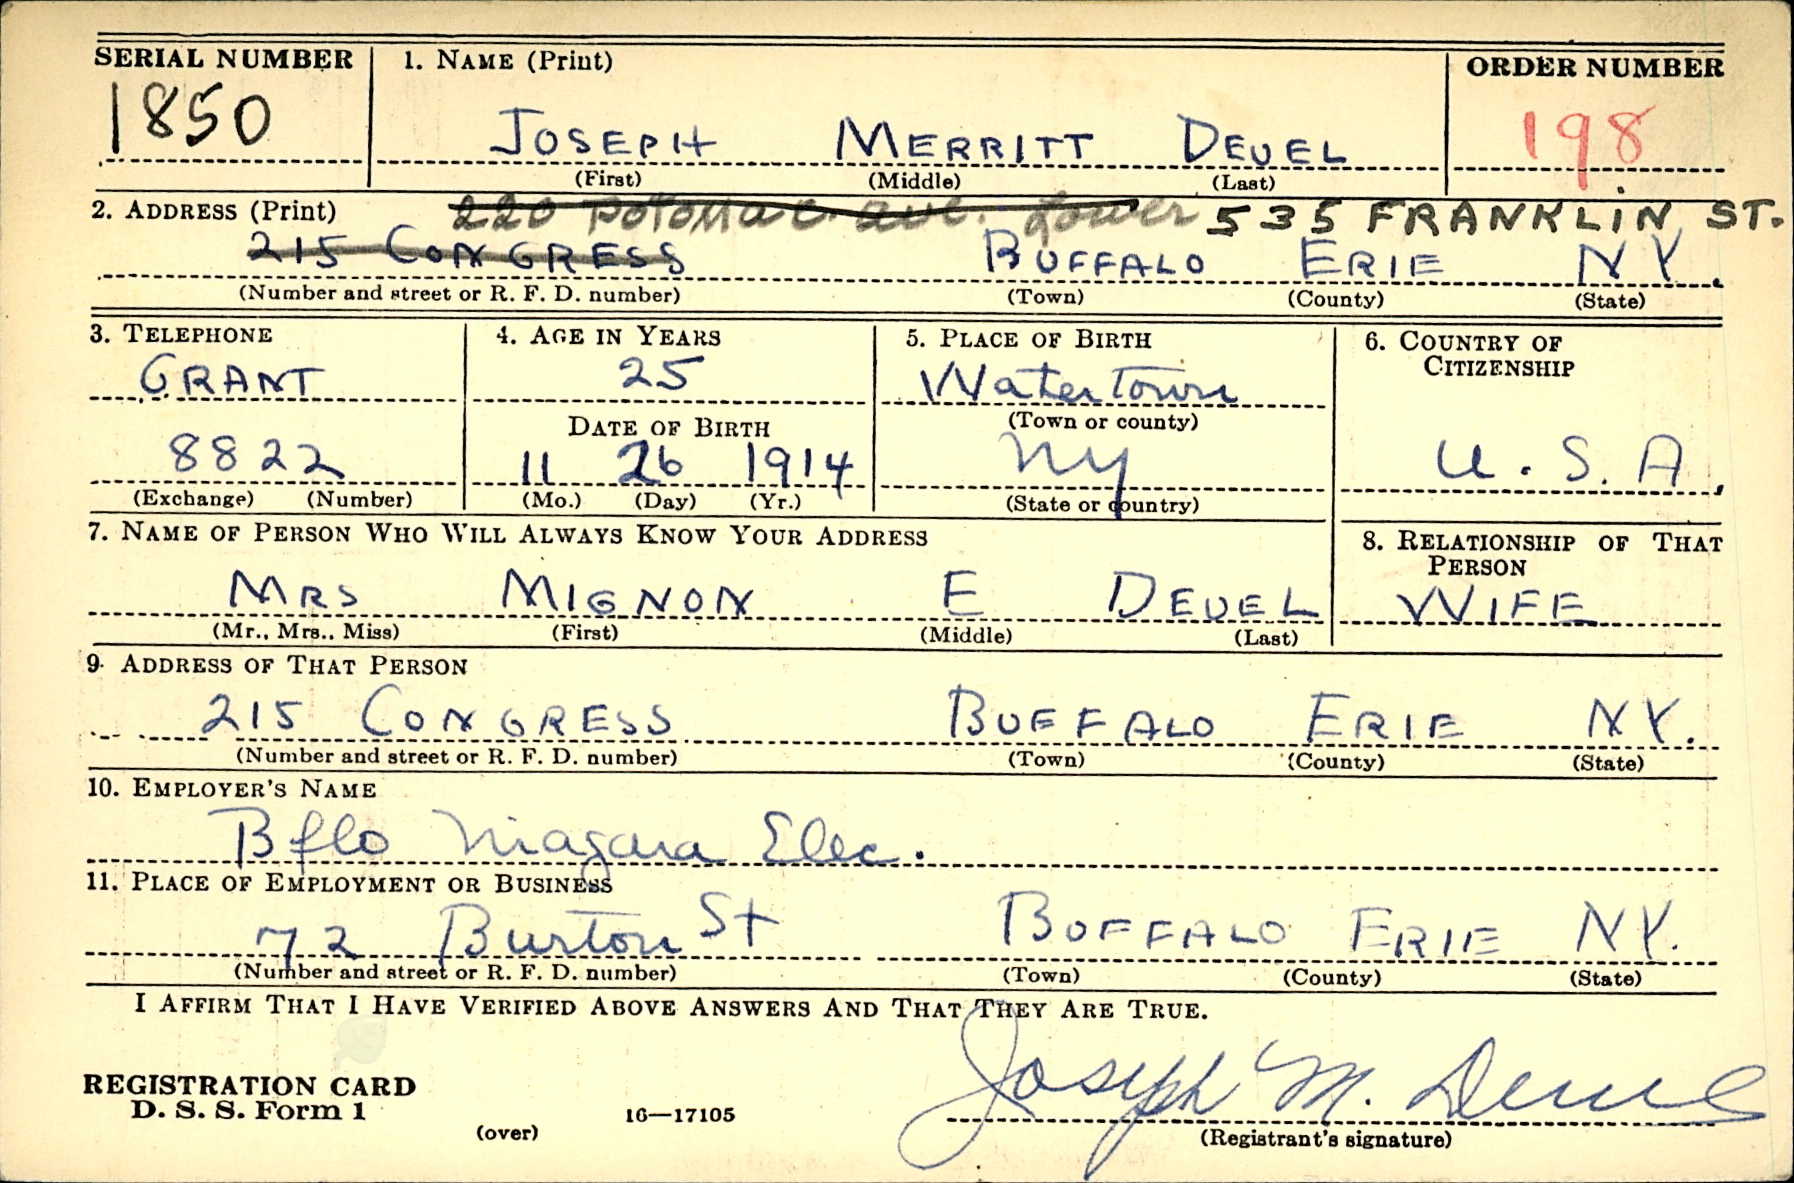 SERIAL NUMBER 1. NAME (Print) ORDER NUMBER
1850 JOSEPH MERRITT DEUEL 198
(First) (Middle) (Last)
2. ADDRESS (Print) 220 Potomac ave. Lower 535 FRANKLIN ST.
215 CONGRESS BUFFALO ERIE NY.
(Number and street or R. F. D. number) (Town) (County) (State)
3. TELEPHONE 4. AGE IN YEARS 5. PLACE OF BIRTH 6. COUNTRY OF
CITIZENSHIP
GRANT 25 Watertown
DATE OF BIRTH (Town or county)
8822 11 26 1914 NY U.S.A.
(Exchange) (Number) (Mo.) (Day) (Yr.) (State or country)
7. NAME OF PERSON WHO WILL ALWAYS KNOW YOUR ADDRESS 8. RELATIONSHIP OF THAT
PERSON
MRS MIGNON E DEUEL WIFE
(Mr., Mrs., Miss) (First) (Middle) (Last)
9. ADDRESS OF THAT PERSON
215 CONGRESS BUFFALO ERIE NY.
(Number and street or R. F. D. number) (Town) (County) (State)
10. EMPLOYER'S NAME
Bflo Niagara Elec.
11. PLACE OF EMPLOYMENT OR BUSINESS
72 Burton St BUFFALO ERIE NY.
(Number and street or R. F. D. number) (Town) (County) (State)
I AFFIRM THAT I HAVE VERIFIED ABOVE ANSWERS AND THAT THEY ARE TRUE.
Joseph M. Deuel
REGISTRATION CARD
D. S. S. Form 1 16—17105
(over) (Registrant's signature)